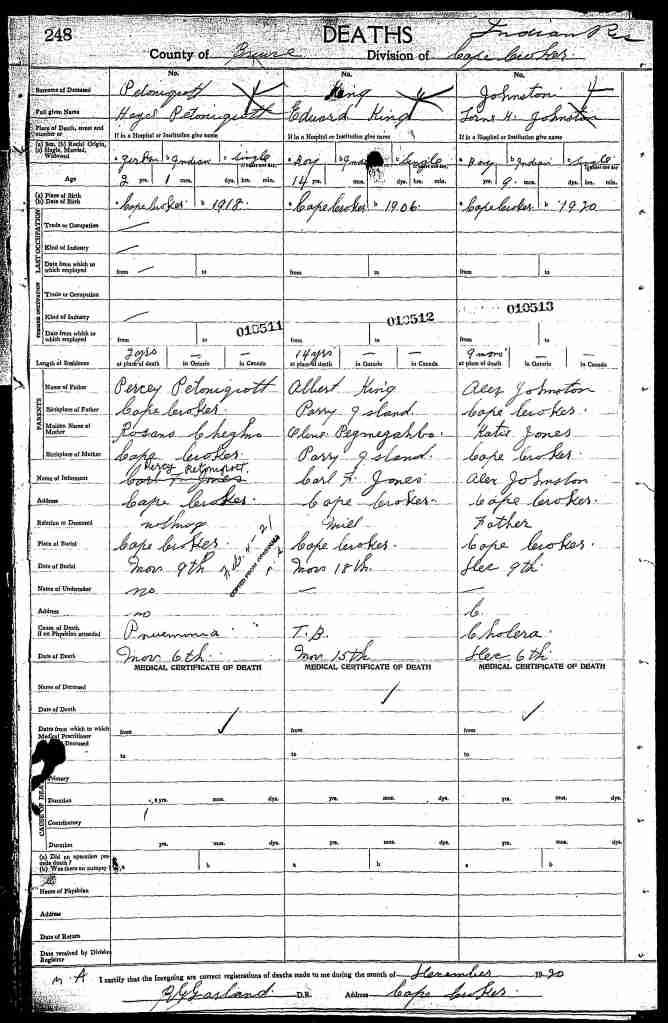 248
DEATHS
Indian Res
County of Bruce Division of Cape Croker
No. No. No.
Surname of Deceased King Johnston
Full given Name Edward King Johnston
Place of Death, street and number or If in a Hospital or Institution give name If in a Hospital or Institution give name If in a Hospital or Institution give name
(a) Sex, (b) Racial Origin, (c) Single, Married, Widowed a b Indian c Single a Boy b c Single a Boy b Indian c Single
Age 2 yrs. 1 mos. dys. hrs. min. 14 yrs. dys. hrs. min. yrs. 9 mos. dys. hrs. min.
(a) Place of Birth
(b) Date of Birth a Cape Croker b 1918 a Cape Croker b 1906 a Cape Croker b 1920
LAST OCCUPATION
Trade or Occupation —
Kind of Industry
Date from which to which employed from — to from to from to
FORMER OCCUPATION
Trade or Occupation
Kind of Industry —
010511 010512 010513
Date from which to which employed from to from to from to
Length of Residence 2 yrs at place of death — in Ontario — in Canada 14 yrs at place of death — in Ontario — in Canada 9 mos at place of death — in Ontario — in Canada
PARENTS
Name of Father Percey Albert King Alex Johnston
Birthplace of Father Cape Croker Parry Island Cape Croker
Maiden Name of Mother Katie Jones
Birthplace of Mother Cape Croker Parry Island Cape Croker
Percy
Name of Informant Carl F. Jones Carl F. Jones Alex Johnston
Address Cape Croker Cape Croker Cape Croker
Relation to Deceased nothing Father
Place of Burial Cape Croker Cape Croker Cape Croker
Date of Burial Nov 9th Nov 18th Dec 9th
Name of Undertaker no — —
Address no C.
Cause of Death if no Physician attended Pnuemonia T.B. Cholera
Date of Death Nov 6th Nov 15th Dec 6th
MEDICAL CERTIFICATE OF DEATH MEDICAL CERTIFICATE OF DEATH MEDICAL CERTIFICATE OF DEATH
Name of Deceased
Date of Death
Dates from which to which Medical Practitioner Deceased from from from
to to to
CAUSE OF DEATH
Primary
Duration yrs. mos. dys. yrs. mos. dys. yrs. mos. dys.
Contributory
Duration yrs. mos. dys. yrs. mos. dys. yrs. mos. dys.
(a) Did an operation precede death?
(b) Was there an autopsy? a b a b a b
Name of Physician
Address
Date of Return
Date received by Division Registrar
I certify that the foregoing are correct registrations of deaths made to me during the month of December 1920
Garland D.R. Address Cape Croker